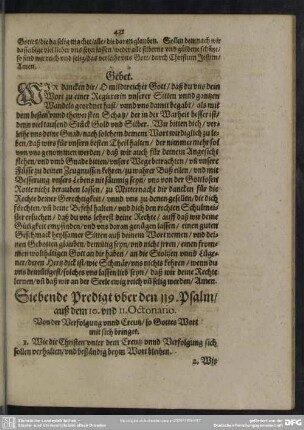 431
Gottes/die da selig machet/alle/die daran glauben. Sollen demnach wir
dasselbige viel lieber uns seyn lassen/weder alle silberne und güldene schätze/
so sind wir reich und selig/das verleihe uns Gott/durch Christum Jesum/
Amen.
Gebet.
WIR dancken dir/O mildreicher Gott/daß du uns dein
Wort zu einer Regiererin unserer Sitten und gantzen
Wandels geordnet hast/und uns damit begabt/als mit
dem besten und thewresten Schatz/der in der Warheit besser ist/
denn viel tausend Stück Gold und Silber. Wir bitten dich/ver-
leihe uns deine Gnad/nach solchem deinem Wort
daß wirs für unsern besten Theil halten/der nimmermehr sol
von uns genommen werden/daß wir auch für deinem Angesicht
flehen/und umb Gnade bitten/unsere Wege betrachten/und unsere
Füsse zu deinen Zeugnussen kehren/zu wahrer Bußeilen/und mit
Besserung unsers Lebens nit säumig seyn/uns von der Gottlosen
Rotte nicht berauben lassen/zu Mitternacht dir dancken für die
Rechte deiner Gerechtigkeit/unnd uns zu denen gesellen/die dich
förchten/und deine Befehl halten/und dich den rechten Schulmei-
ster ersuchen/daß du uns lehrest deine Rechte/auff daß wir deine
Gütigkeit empfinden/und uns daran genügen lassen/einen guten
Geschmack heylsamer Sitten auß deinem Wort nemen/und dei-
nen Gebotten glauben/demütig seyn/und nicht irren/einen from-
men wolthätigen Gott an dir haben/an die Stoltzen und Lüge-
ner/deren Hertz dick ist/wie Schmär/uns nichts kehren/wenn du
uns demütigest/solches uns lassen lieb seyn/daß wir deine Rechte
lernen/und daß wir an der Seele ewig reich und selig werden/Amen.
Siebende Predigt uber den 119. Psalm/
auß dem 10. und 11. Octonario.
Von der Verfolgung unnd Creutz/so Gottes Wort
mit sich bringet.
1. Wie die Christen unter dem Creutz unnd Verfolgung sich
sollen verhalten/und beständig beym Wort bleiben.
2. Wje